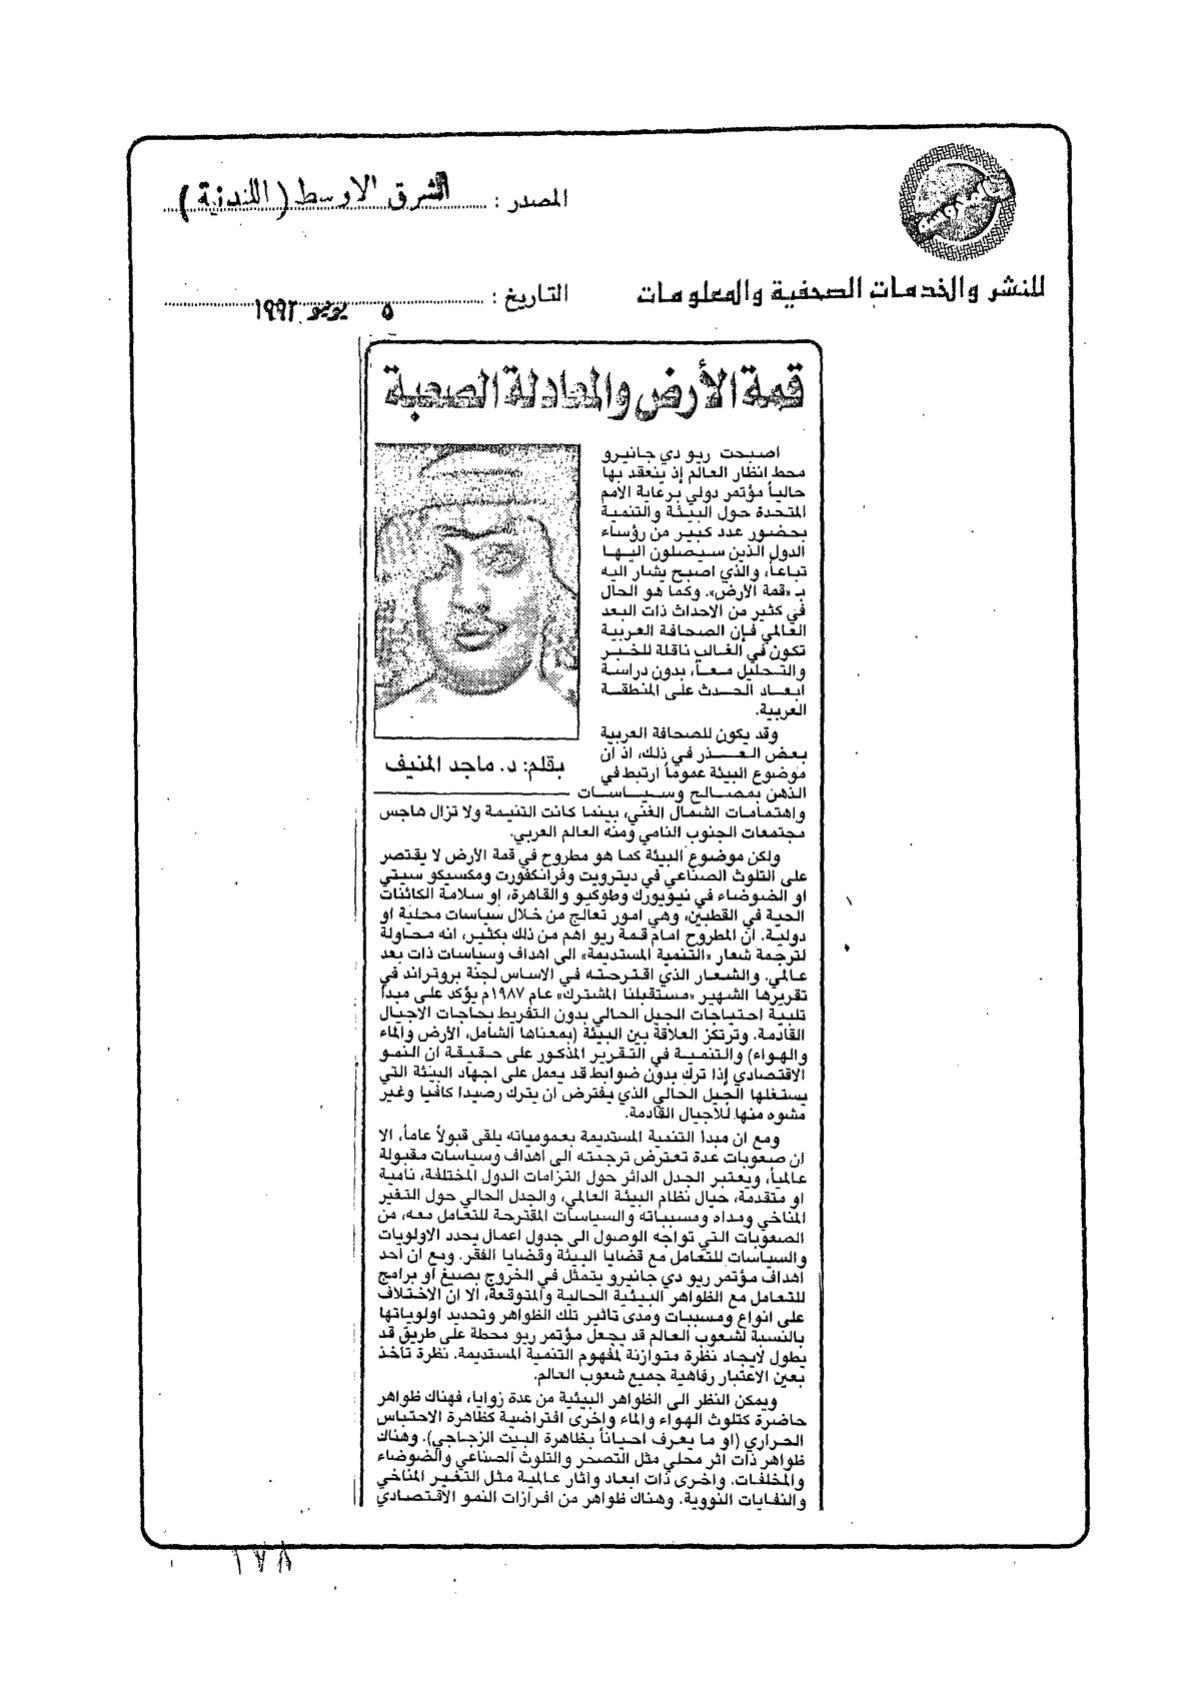 المصدر : الشرق الاوسط (اللندنية)
للنشر والخدمات الصحفية والمعلومات
التاريخ : ٥ يونيو ١٩٩٢
قمة الأرض والمعادلة الصعبة
اصبحت ريو دي جانيرو
محط انظار العالم إذ ينعقد بها
حالياً مؤتمر دولي برعاية الأمم
المتحدة حول البيئة والتنمية
بحضور عدد كبير من رؤساء
الدول الذين سيصلون اليها
تباعاً، والذي اصبح يشار اليه
بـ «قمة الأرض». وكما هو الحال
في كثير من الاحداث ذات البعد
العالمي فإن الصحافة العربية
تكون في الغالب ناقلة للخبر
والتحليل معاً، بدون دراسة
ابعاد الحدث على المنطقة
العربية.
وقد يكون للصحافة العربية
بعض العذر في ذلك، اذ ان
موضوع البيئة عموماً ارتبط في
الذهن بمصالح وسياسات
بقلم: د. ماجد المنيف
واهتمامات الشمال الغني، بينما كانت التنيمة ولا تزال هاجس
مجتمعات الجنوب النامي ومنه العالم العربي.
ولكن موضوع البيئة كما هو مطروح في قمة الأرض لا يقتصر
على التلوث الصناعي في ديترويت وفرانكفورت ومكسيكو سيتي
او الضوضاء في نيويورك وطوكيو والقاهرة، او سلامة الكائنات
الحية في القطبين، وهي امور تعالج من خلال سياسات محلية او
دولية. ان المطروح امام قمة ريو اهم من ذلك بكثير، انه محاولة
لترجمة شعار «التنمية المستديمة» الى اهداف وسياسات ذات بعد
عالمي. والشعار الذي اقترحته في الاساس لجنة بروتراند في
تقريرها الشهير «مستقبلنا المشترك» عام ١٩٨٧م يؤكد على مبدأ
تلبية احتياجات الجيل الحالي بدون التفريط بحاجات الاجيال
القادمة. وترتكز العلاقة بين البيئة (بمعناها الشامل، الأرض والماء
والهواء) والتنمية في التقرير المذكور على حقيقة ان النمو
الاقتصادي إذا ترك بدون ضوابط قد يعمل على اجهاد البيئة التي
يستغلها الجيل الحالي الذي يفترض ان يترك رصيدا كافيا وغير
مشوه منها للأجيال القادمة.
ومع ان مبدا التنمية المستديمة بعمومياته يلقى قبولاً عاماً، الا
ان صعوبات عدة تعترض ترجمته الى اهداف وسياسات مقبولة
عالمياً، ويعتبر الجدل الدائر حول التزامات الدول المختلفة، نامية
او متقدمة، حيال نظام البيئة العالمي، والجدل الحالي حول التغير
المناخي ومداه ومسبباته والسياسات المقترحة للتعامل معه، من
الصعوبات التي تواجه الوصول الى جدول اعمال يحدد الاولويات
والسياسات للتعامل مع قضايا البيئة وقضايا الفقر. ومع ان أحد
اهداف مؤتمر ريو دي جانيرو يتمثل في الخروج بصيغ أو برامج
للتعامل مع الظواهر البيئية الحالية والمتوقعة، الا ان الاختلاف
على انواع ومسببات ومدى تاثير تلك الظواهر وتحديد اولوياتها
بالنسبة لشعوب العالم قد يجعل مؤتمر ريو محطة على طريق قد
يطول لايجاد نظرة متوازنة لمفهوم التنمية المستديمة. نظرة تأخذ
بعين الاعتبار رفاهية جميع شعوب العالم.
ويمكن النظر الى الظواهر البيئية من عدة زوايا، فهناك ظواهر
حاضرة كتلوث الهواء والماء واخرى افتراضية كظاهرة الاحتباس
الحراري (او ما يعرف احياناً بظاهرة البيت الزجاجي). وهناك
ظواهر ذات اثر محلي مثل التصحر والتلوث الصناعي والضوضاء
والمخلفات. واخرى ذات ابعاد واثار عالمية مثل التغير المناخي
والنفايات النووية. وهناك ظواهر من افرازات النمو الاقتصادي
١٧٨